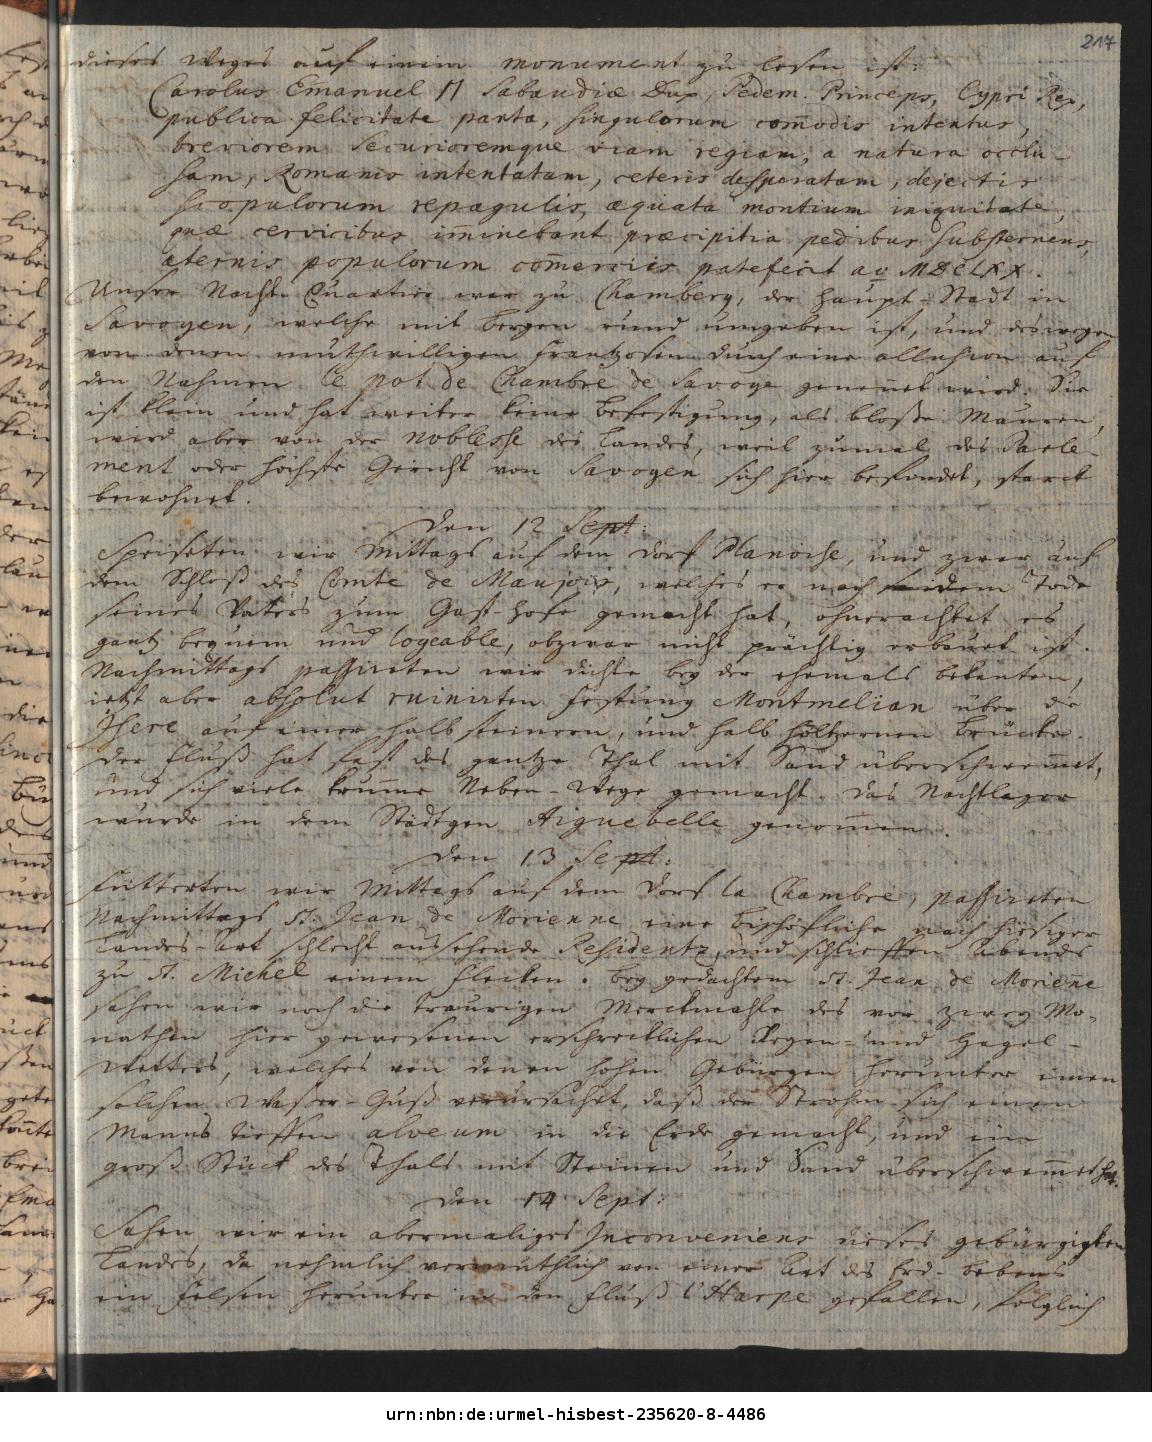 217
dieses Weges auf einem monument zu lesen ist:
Carolus Emanuel II Sabaudiæ Dux, Pedem. Princeps, Cypri Rex,
publica felicitate parta, singulorum com̄odis intentus,
breviorem securioremque viam regiam, a natura occlu-
sam, Romanis intentatam, ceteris desperatam, dejectis
scopulorum repagulis, æquata montium iniquitate,
quæ cervicibus im̄inebant præcipitia pedibus substernens,
æternis populorum com̄erciis patefecit ao MDCLXX.
Unser Nacht-Quartier war zu Chambery, der Haupt-Stadt in
Savoyen, welche mit Bergen rund umgeben ist, und deswegen
von denen muthwilligen Frantzosen durch eine allusion auf
den Nahmen le pot de Chambre de Savoye genen̄et wird. Sie
ist klein und hat weiter keine Befestigung, als bloße Mauren,
wird aber von der noblesse des Landes, weil zumal das Parle-
ment oder höchste Gericht von Savoyen sich hier befindet, starck
bewohnet.
Den 12 Sept:
Speiseten wir Mittags auf dem Dorf Planoise, und zwar auf
dem Schloß des Comte de Maujois, welches er nach dem Tode
seines Vaters zum Gast-Hofe gemacht hat, ohnerachtet es
gantz bequem und logeable, obzwar nicht prächtig erbauet ist.
Nachmittags passireten wir dichte bey der ehemals bekanten,
jetzt aber absolut ruinirten Festung Montmelian über die
Isere auf einer halb steinern, und halb höltzernen Brücke.
Der Fluß hat fast das gantze Thal mit Sand überschwem̄et,
und sich viele krum̄e Neben-Wege gemacht. Das Nachtlager
wurde in dem Städtgen Aiguebelle genom̄en.
Den 13 Sept:
Futterten wir Mittags auf dem Dorf la Chambre, passireten
Nachmittags St. Jean de Morienne eine Bischöfliche nach hiesiger
Landes-Art schlecht aussehende Residentz, und schlieffen Abends
zu St. Michel einem Flecken. Bey gedachtem St. Jean de Morien̄e
sahen wir noch die traurigen Merckmahle des vor zwey Mo-
nathen hier gewesenen erschrecklichen Regen- und Hagel-
Wetters, welches von denen hohen Gebürgen herunter einen
solchen Wasser-Guß verursachet, daß der Strohm sich einen
Manns tieffen alveum in die Erde gemacht, und ein
groß Stück des Thals mit Steinen und Sand überschwem̄et hat.
Den 14 Sept:
Sahen wir ein abermaliges Inconveniens dieses gebürgigten
Landes, da nehmlich vermuthlich von einer Art des Erd-Bebens
ein Felsen herunter in den Fluß l'Harpe gefallen, folglich
urn:nbn:de:urmel-hisbest-235620-8-4486